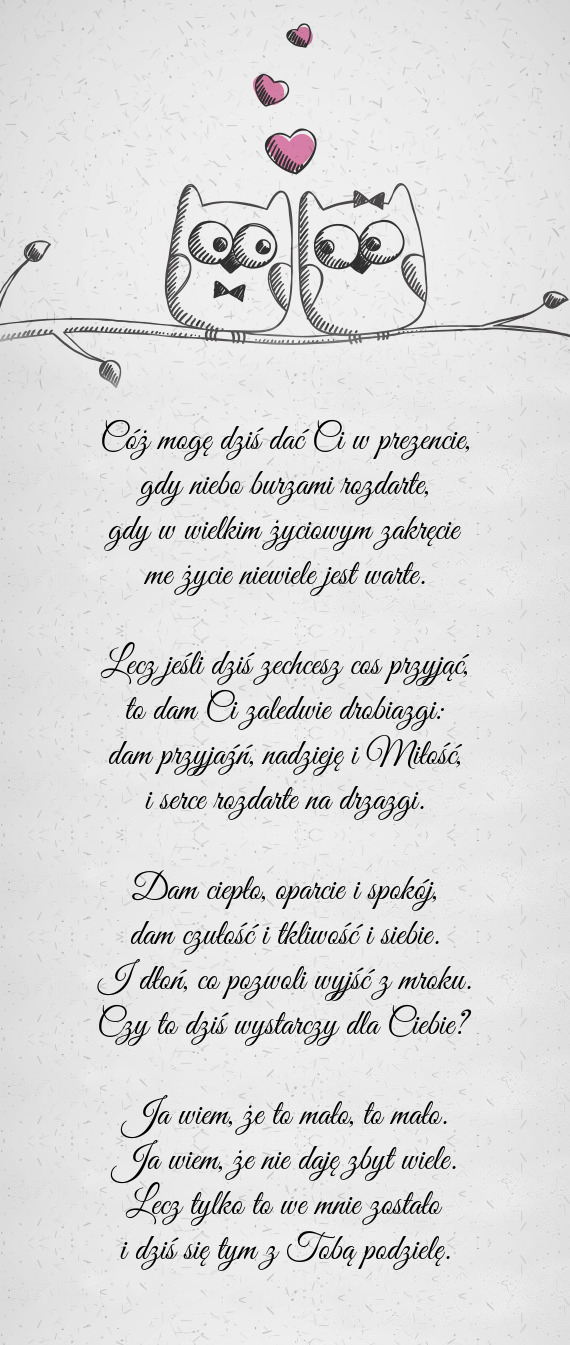 Cóż mogę dziś dać Ci w prezencie,
gdy niebo burzami rozdarte,
gdy w wielkim życiowym zakręcie
me życie niewiele jest warte.
Lecz jeśli dziś zechcesz cos przyjąć,
to dam Ci zaledwie drobiazgi:
dam przyjaźń, nadzieję i Miłość,
i serce rozdarte na drzazgi.
Dam ciepło, oparcie i spokój,
dam czułość i tkliwość i siebie.
I dłoń, co pozwoli wyjść z mroku.
Czy to dziś wystarczy dla Ciebie?
Ja wiem, że to mało, to mało.
Ja wiem, że nie daję zbyt wiele.
Lecz tylko to we mnie zostało
i dziś się tym z Tobą podzielę.